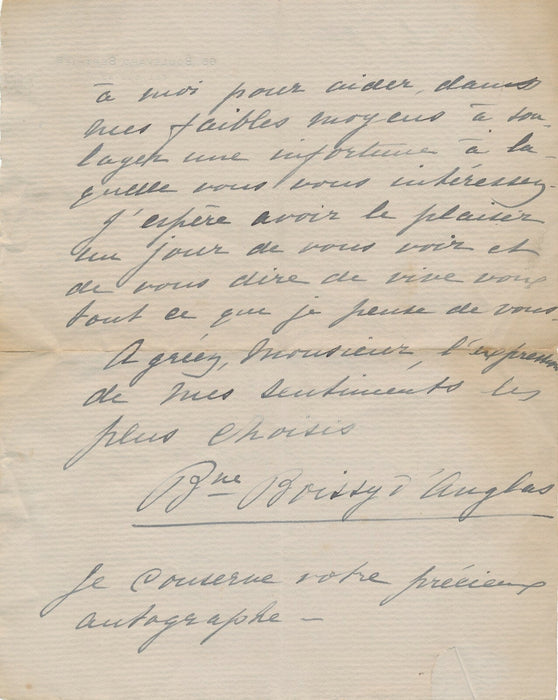 à moi pour aider, dans
mes faibles moyens à sou-
lager une infortune à la-
quelle vous vous intéressez
J'espère avoir le plaisir
un jour de vous voir et
de vous dire de vive voix
tout ce que je pense de vous
Agréez, Monsieur, l'expression
de mes sentiments les
plus choisis
Bne Boissy d'Anglas
Je conserve votre précieux
autographe —